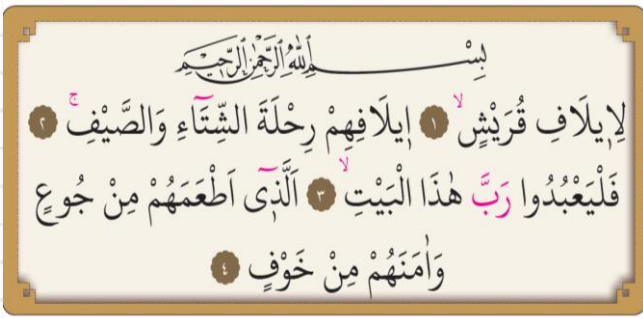 بِسْمِ اللّٰهِ الرَّحْمٰنِ الرَّحٖيمِ
لِاٖيلَافِ قُرَيْشٍۙ ١ اٖيلَافِهِمْ رِحْلَةَ الشِّتَٓاءِ وَالصَّيْفِۚ ٢
فَلْيَعْبُدُوا رَبَّ هٰذَا الْبَيْتِۙ ٣ اَلَّـذٖٓى اَطْعَمَهُمْ مِنْ جُوعٍ
وَاٰمَنَهُمْ مِنْ خَوْفٍ ٤